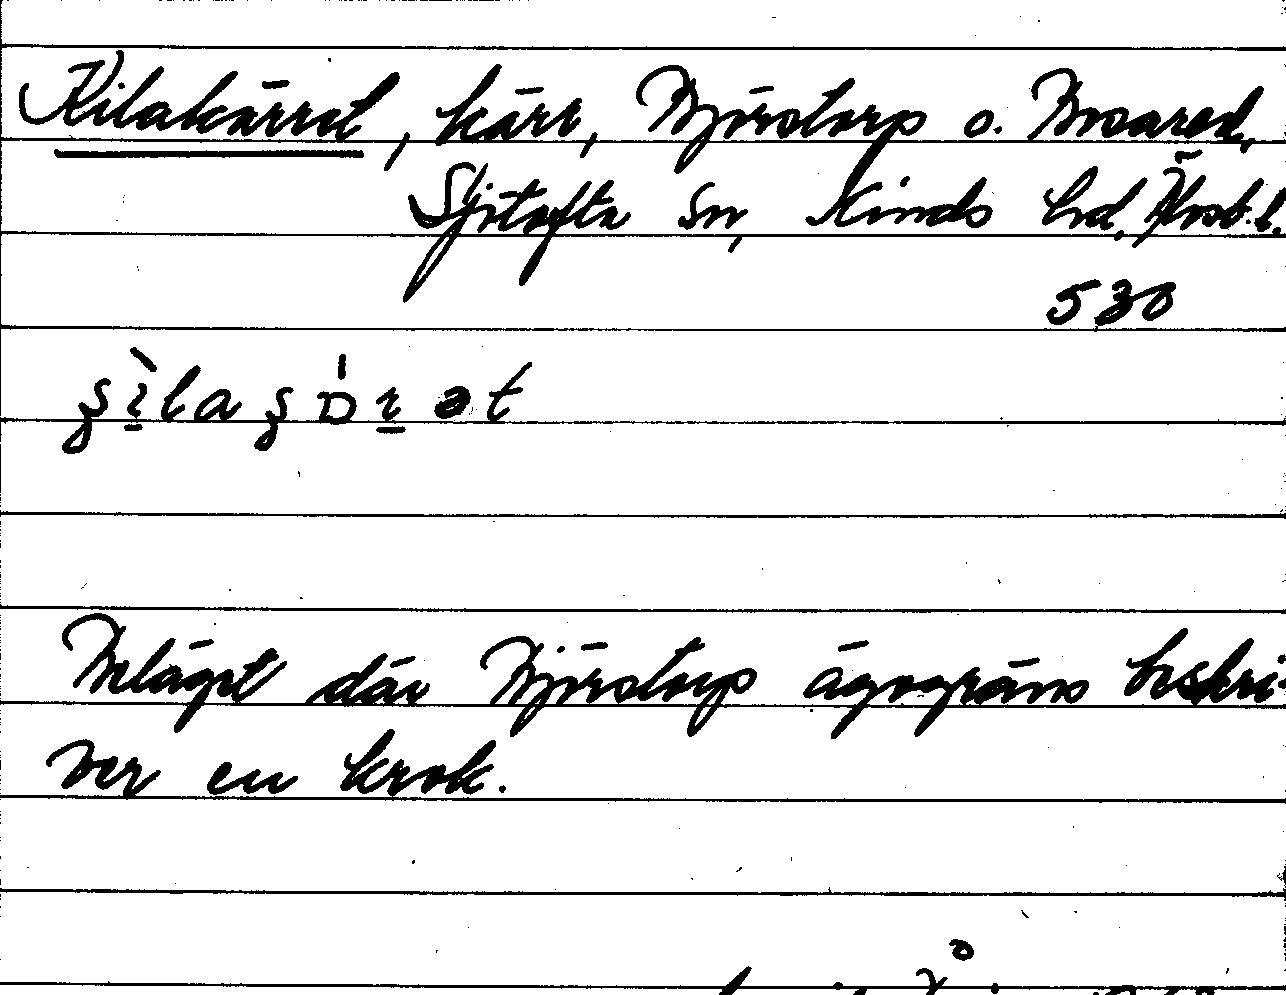 Kilakärret, kärr, Björstorp o. Boared,
Sjötofta sn, Kinds hd, Älvsb. l.
530
Beläget där Björstorps ägogräns beskri-
ver en krok.